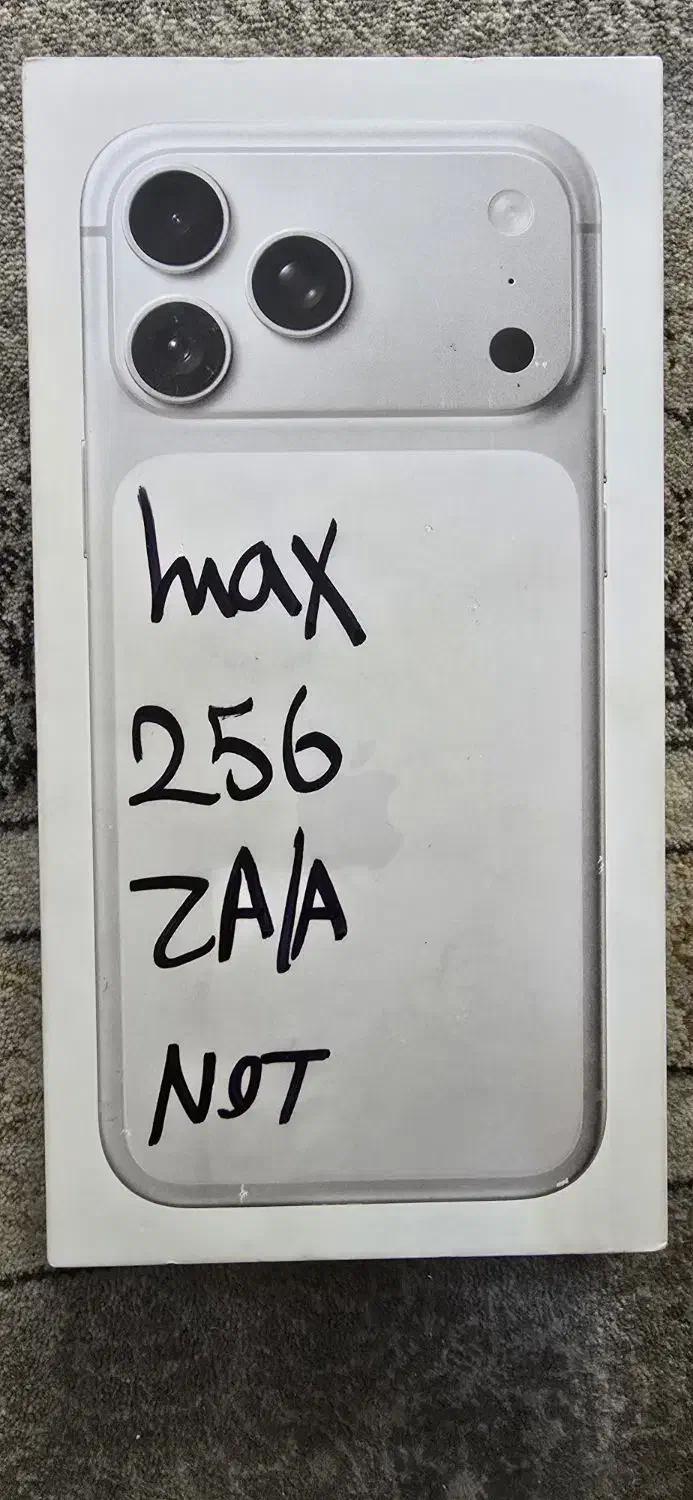 max
256
ZA/A
NOT